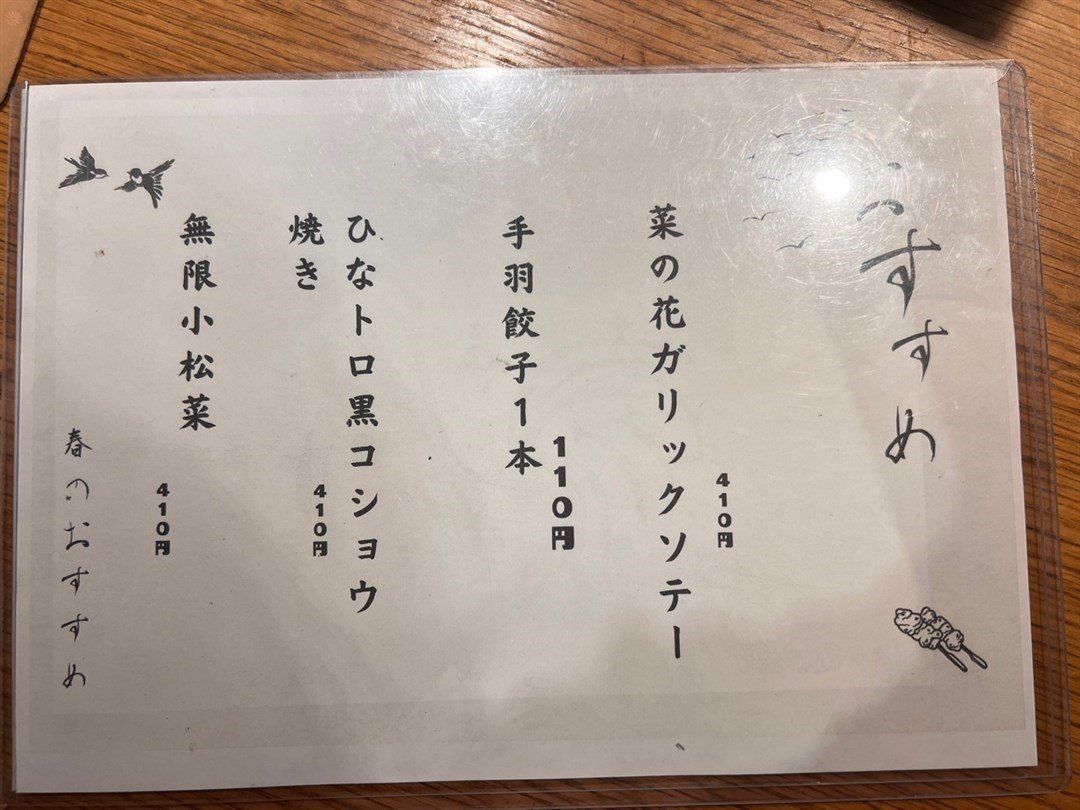 おすすめ
菜の花ガリックソテー
410円
手羽餃子1本
110円
ひなトロ黒コショウ
焼き
410円
無限小松菜
410円
春のおすすめ